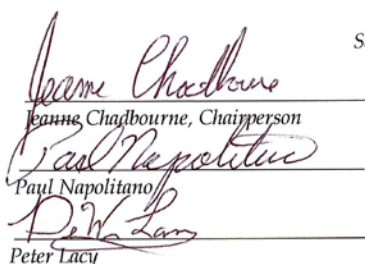 S
Jeanne Chadbourne
Jeanne Chadbourne, Chairperson
Paul Napolitano
Paul Napolitano
Peter Lacy